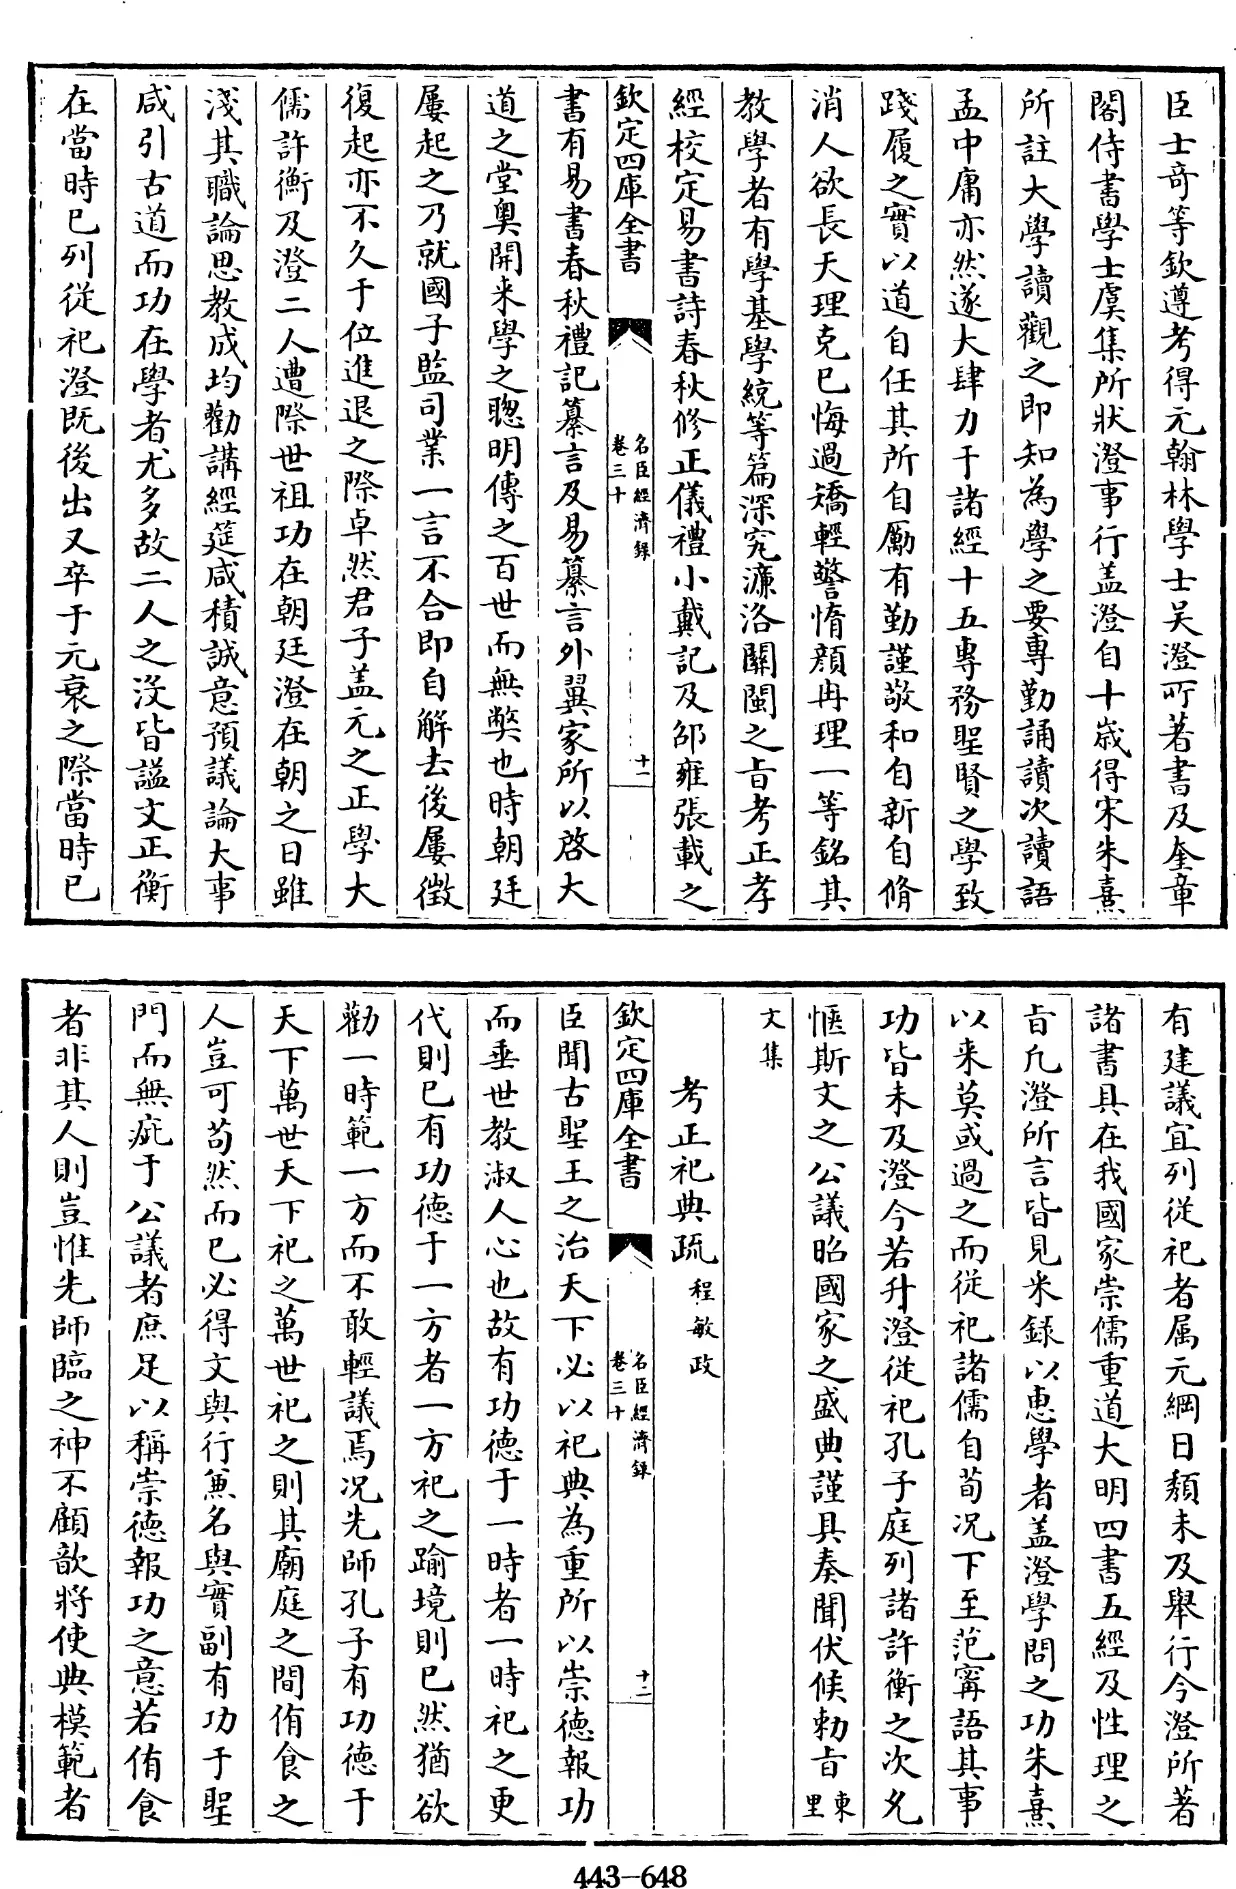 臣士奇等欽遵考得元翰林學士吴澄所著書及奎章
閣侍書學士虞集所狀澄事行盖澄自十歲得宋朱熹
所註大學讀觀之即知為學之要專勤誦讀次讀語
孟中庸亦然遂大肆力于諸經十五專務聖賢之學致
踐履之實以道自任其所自勵有勤謹敬和自新自脩
消人欲長天理克已悔過矯輕警惰顔冉理一等銘其
教學者有學基學統等篇深究濂洛關閩之旨考正孝
經校定易書詩春秋修正儀禮小戴記及邵雍張載之
欽定四庫全書
名臣經濟録
卷三十
十一
書有易書春秋禮記纂言及易纂言外翼家所以啓大
道之堂奥開来學之聰明傳之百世而無弊也時朝廷
屢起之乃就國子監司業一言不合即自解去後屢徴
復起亦不久于位進退之際卓然君子盖元之正學大
儒許衡及澄二人遭際世祖功在朝廷澄在朝之日雖
淺其職論思教成均勸講經筵咸積誠意預議論大事
咸引古道而功在學者尤多故二人之沒皆謚文正衡
在當時已列從祀澄既後出又卒于元衰之際當時已
有建議宜列從祀者属元綱日頺未及舉行今澄所著
諸書具在我國家崇儒重道大明四書五經及性理之
旨凡澄所言皆見采録以惠學者盖澄學問之功朱熹
以来莫或過之而從祀諸儒自荀况下至范甯語其事
功皆未及澄今若升澄從祀孔子庭列諸許衡之次允
愜斯文之公議昭國家之盛典謹具奏聞伏候勅旨東里
文集
考正祀典疏程敏政
欽定四庫全書
名臣經濟録
卷三十
十二
臣聞古聖王之治天下必以祀典為重所以崇德報功
而垂世教淑人心也故有功德于一時者一時祀之更
代則已有功德于一方者一方祀之踰境則已然猶欲
勸一時範一方而不敢輕議焉况先師孔子有功德于
天下萬世天下祀之萬世祀之則其廟庭之間侑食之
人豈可苟然而已必得文與行兼名與實副有功于聖
門而無疵于公議者庶足以稱崇德報功之意若侑食
者非其人則豈惟先師臨之神不顧歆將使典模範者
443-648